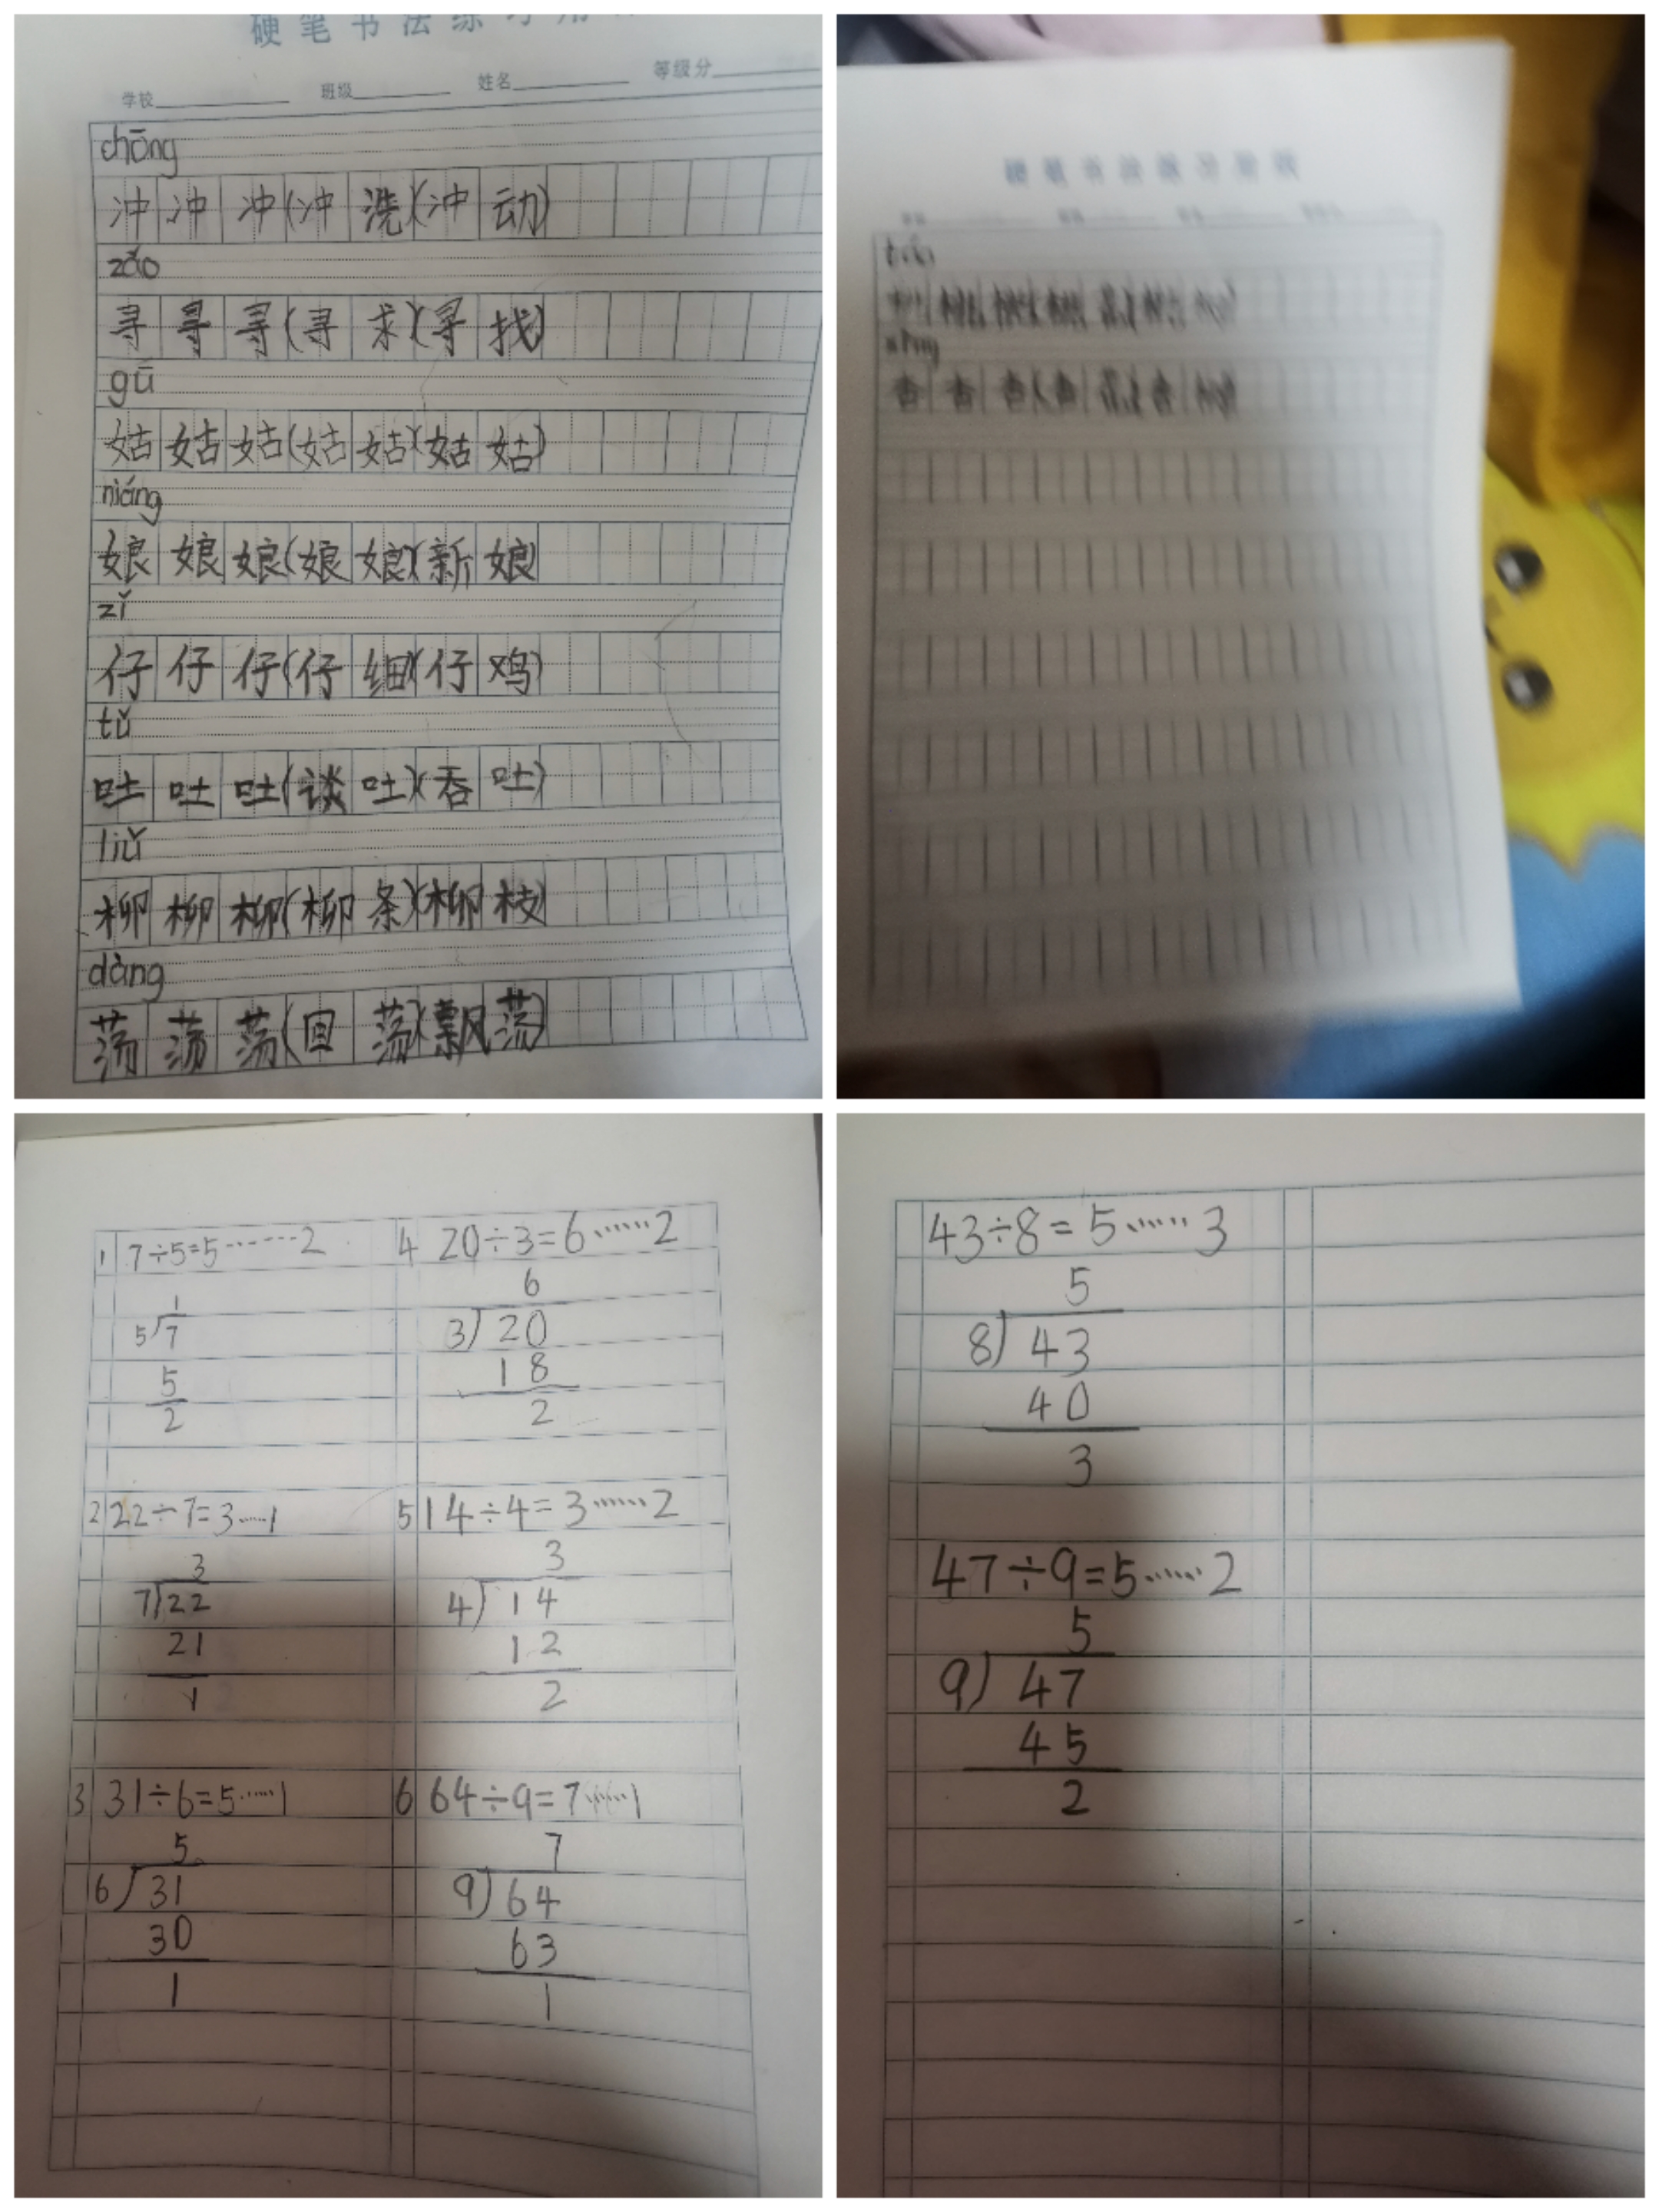 硬笔书法练习用
学校 班级 姓名 等级分
chōng
冲冲冲(冲洗)(冲动)
zǎo
寻寻寻(寻求)(寻找)
gū
姑姑姑(姑姑)(姑姑)
niáng
娘娘娘(娘娘)(新娘)
zǐ
仔仔仔(仔细)(仔鸡)
tǔ
吐吐吐(谈吐)(吞吐)
liǔ
柳柳柳(柳条)(柳枝)
dàng
荡荡荡(回荡)(飘荡)
1 7÷5=5······2
1
5 7
5
2
2 22÷7=3····1
3
7 22
21
1
3 31÷6=5·····1
5
6 31
30
1
4 20÷3=6······2
6
3) 20
18
2
5 14÷4=3······2
3
4) 14
12
2
6 64÷9=7······1
7
9) 64
63
1
43÷8=5······3
5
8) 43
40
3
47÷9=5······2
5
9) 47
45
2